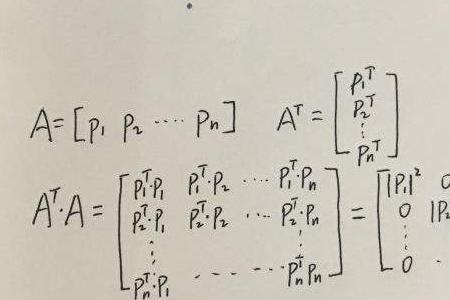 A = [P₁ P₂ ···· Pₙ] Aᵀ = [P₁ᵀ P₂ᵀ ⋮ Pₙᵀ]
Aᵀ·A = [P₁ᵀ·P₁ P₁ᵀ·P₂ ··· P₁ᵀ·Pₙ
P₂ᵀ·P₁ P₂ᵀ·P₂ ··· P₂ᵀ·Pₙ
⋮ ⋮
Pₙᵀ·P₁ ----- PₙᵀPₙ] = [|P₁|² 0
0 |P₂
⋮
0 ·